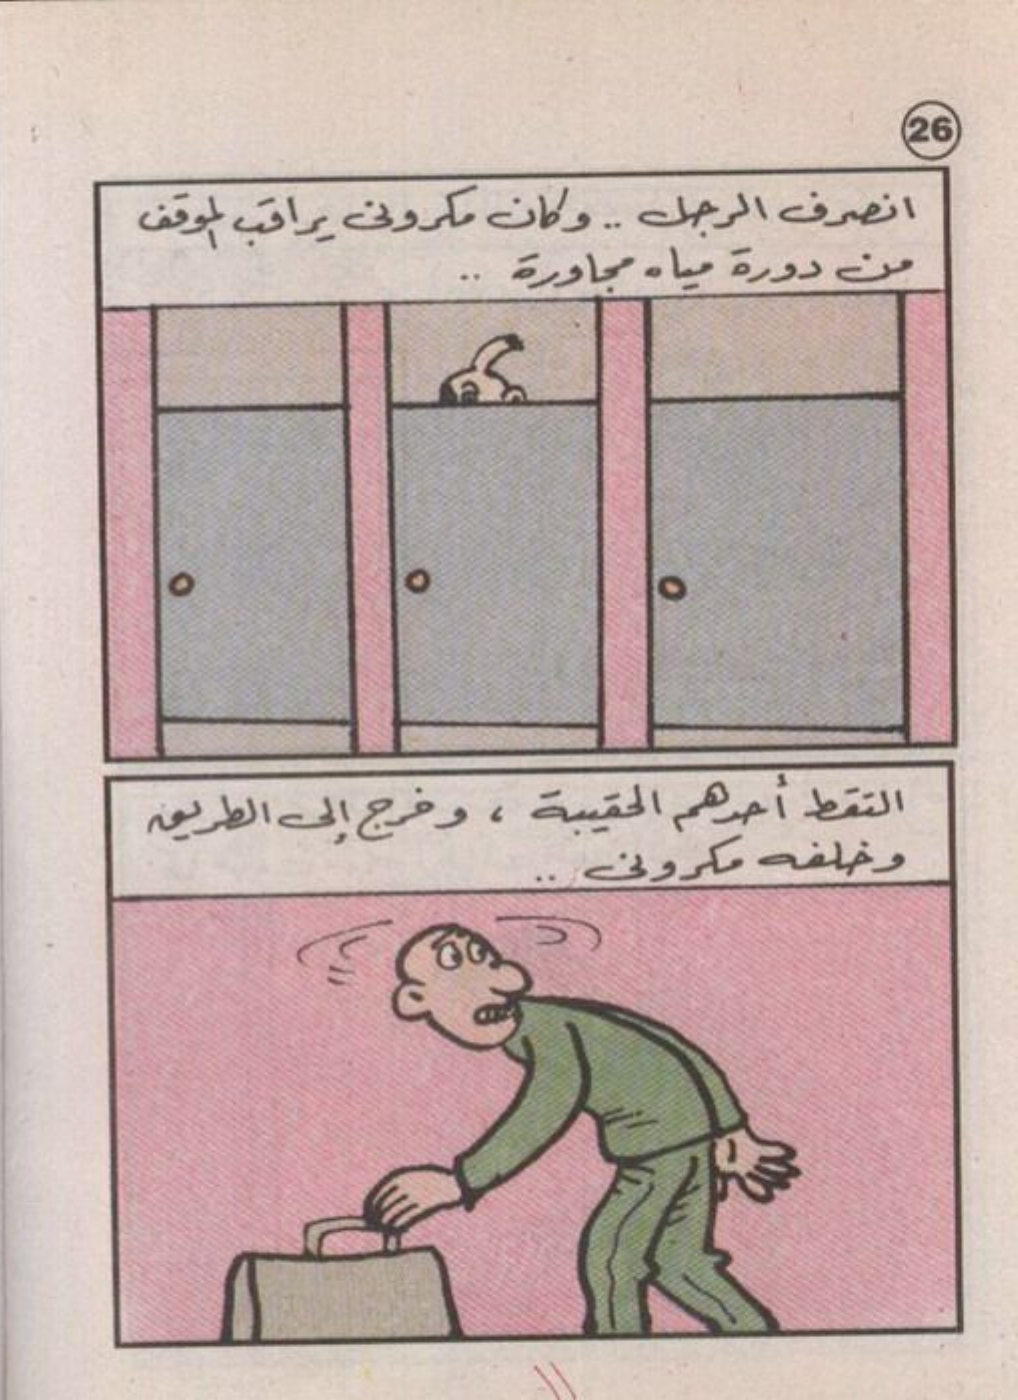 26
انصرف الرجل .. وكان مكرونى يراقب الموقف
من دورة مياه مجاورة ..
التقط أحدهم الحقيبة ، وخرج إلى الطريق
وخلفه مكرونى ..